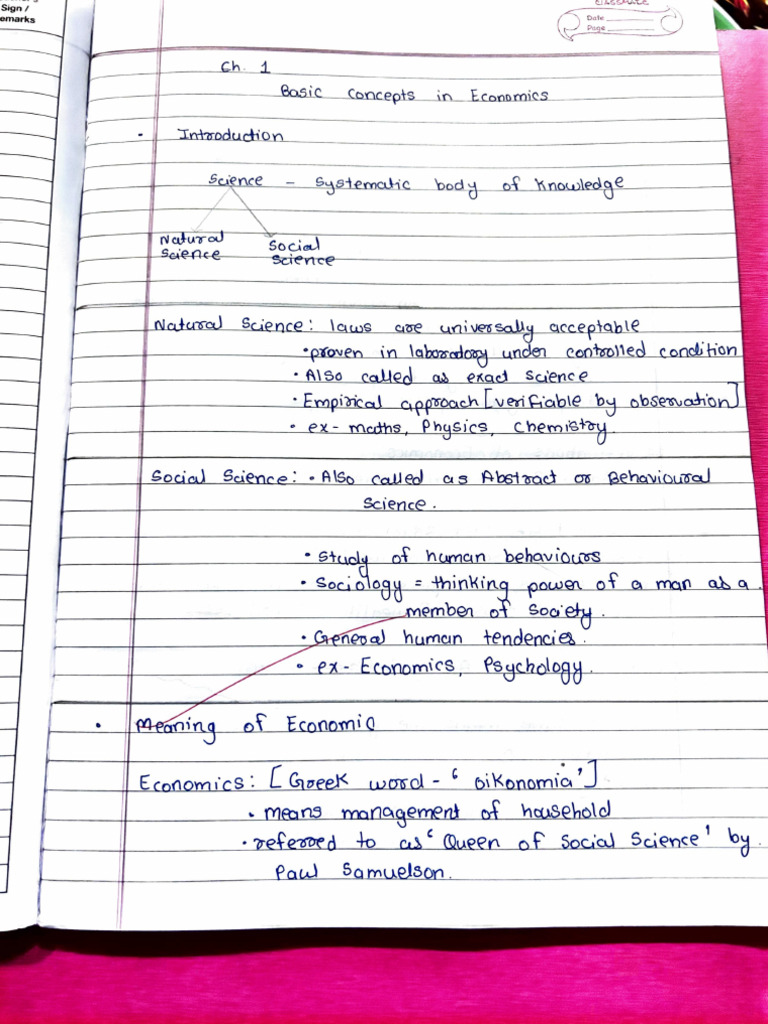 Sign /
emarks
CLASSMATE
Date
Page
Ch. 1
Basic Concepts in Economics
• Introduction
Science – Systematic body of Knowledge
Natural Science
Social Science
Natural Science: laws are universally acceptable
• proven in laboratory under controlled condition
• Also called as exact science
• Empirical approach [verifiable by observation]
• ex- maths, Physics, Chemistry.
Social Science: • Also called as Abstract or Behavioural
Science.
• Study of human behaviours
• Sociology = thinking power of a man as a
member of Society.
• General human tendencies.
• ex- Economics, Psychology.
• Meaning of Economic
Economics: [Greek word - ' oikonomia']
• means management of household
• referred to as ' Queen of Social Science' by
Paul Samuelson.